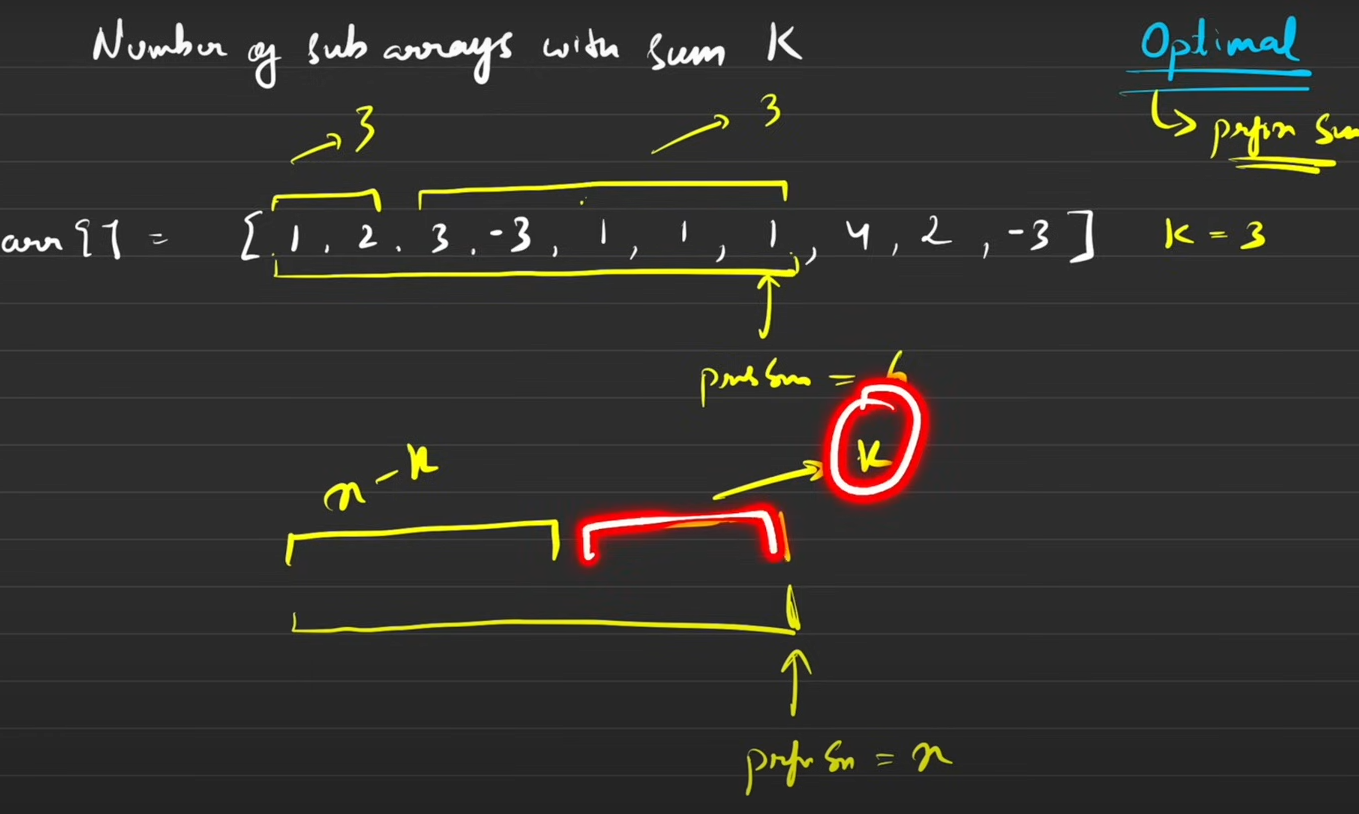 Number of sub arrays with sum K
Optimal
↳ prefix Sum
3
3
arr[] = [1, 2, 3, -3, 1, 1, 1, 4, 2, -3] K = 3
= 6
K
x - K
= x